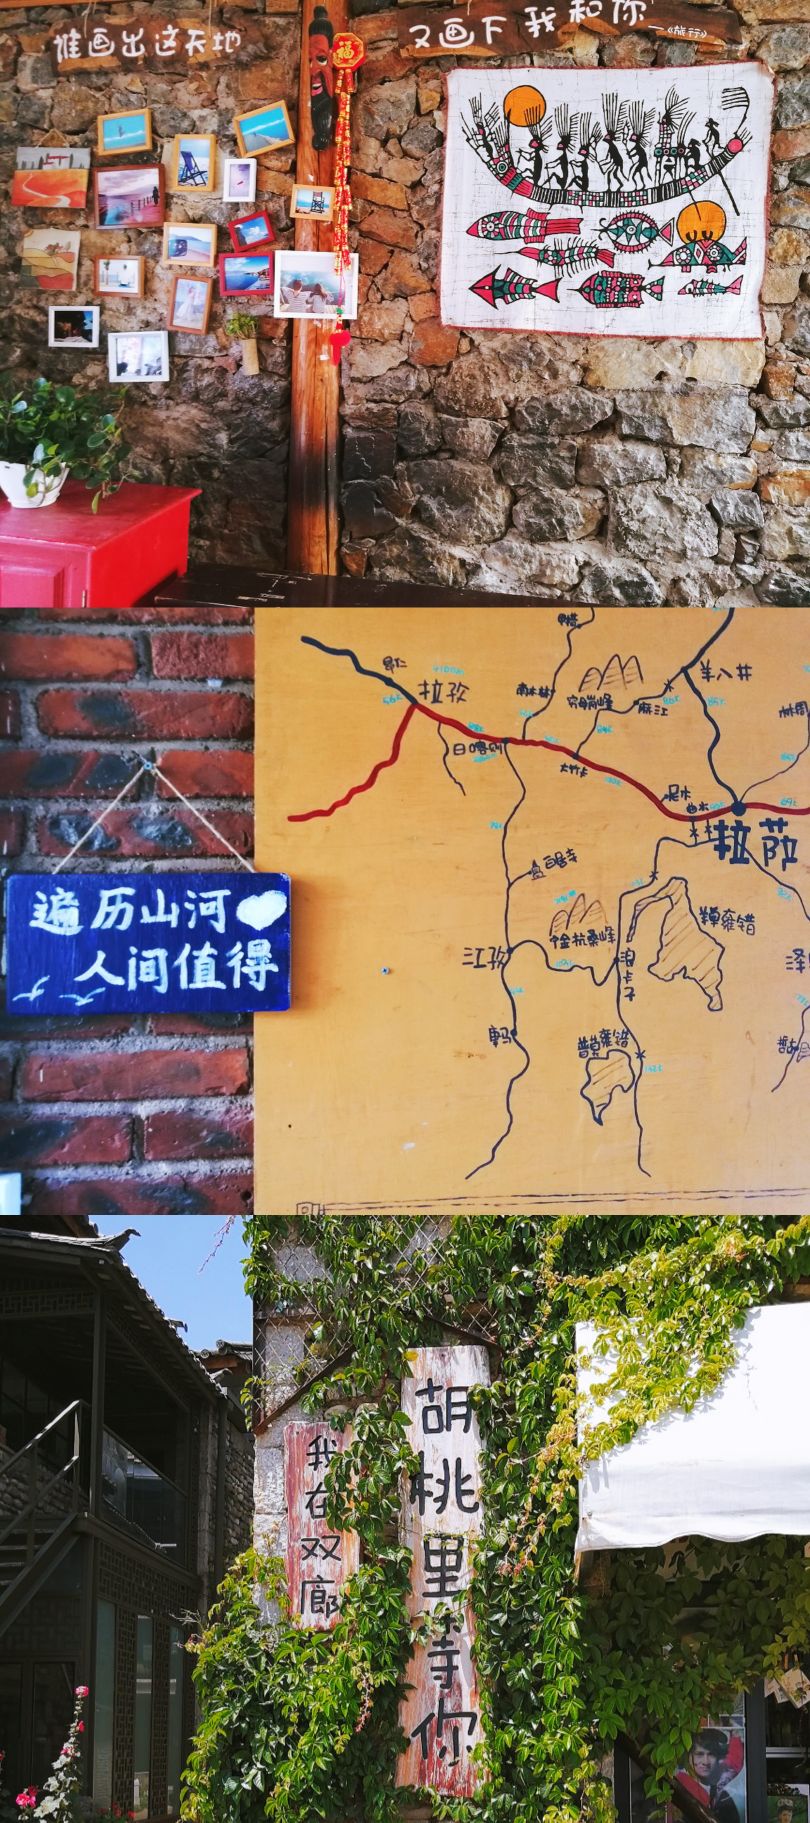 谁画出这天地
又画下我和你
—《旅行》
福
遍历山河
人间值得
昂仁
拉孜
日喀则
南木林
穷母岗峰
麻江
羊八井
林周
大竹卡
尼木
曲水
拉萨
白居寺
江孜
卡若拉
浪卡子
羊卓雍错
康马
普莫雍错
我在双廊
胡桃里等你